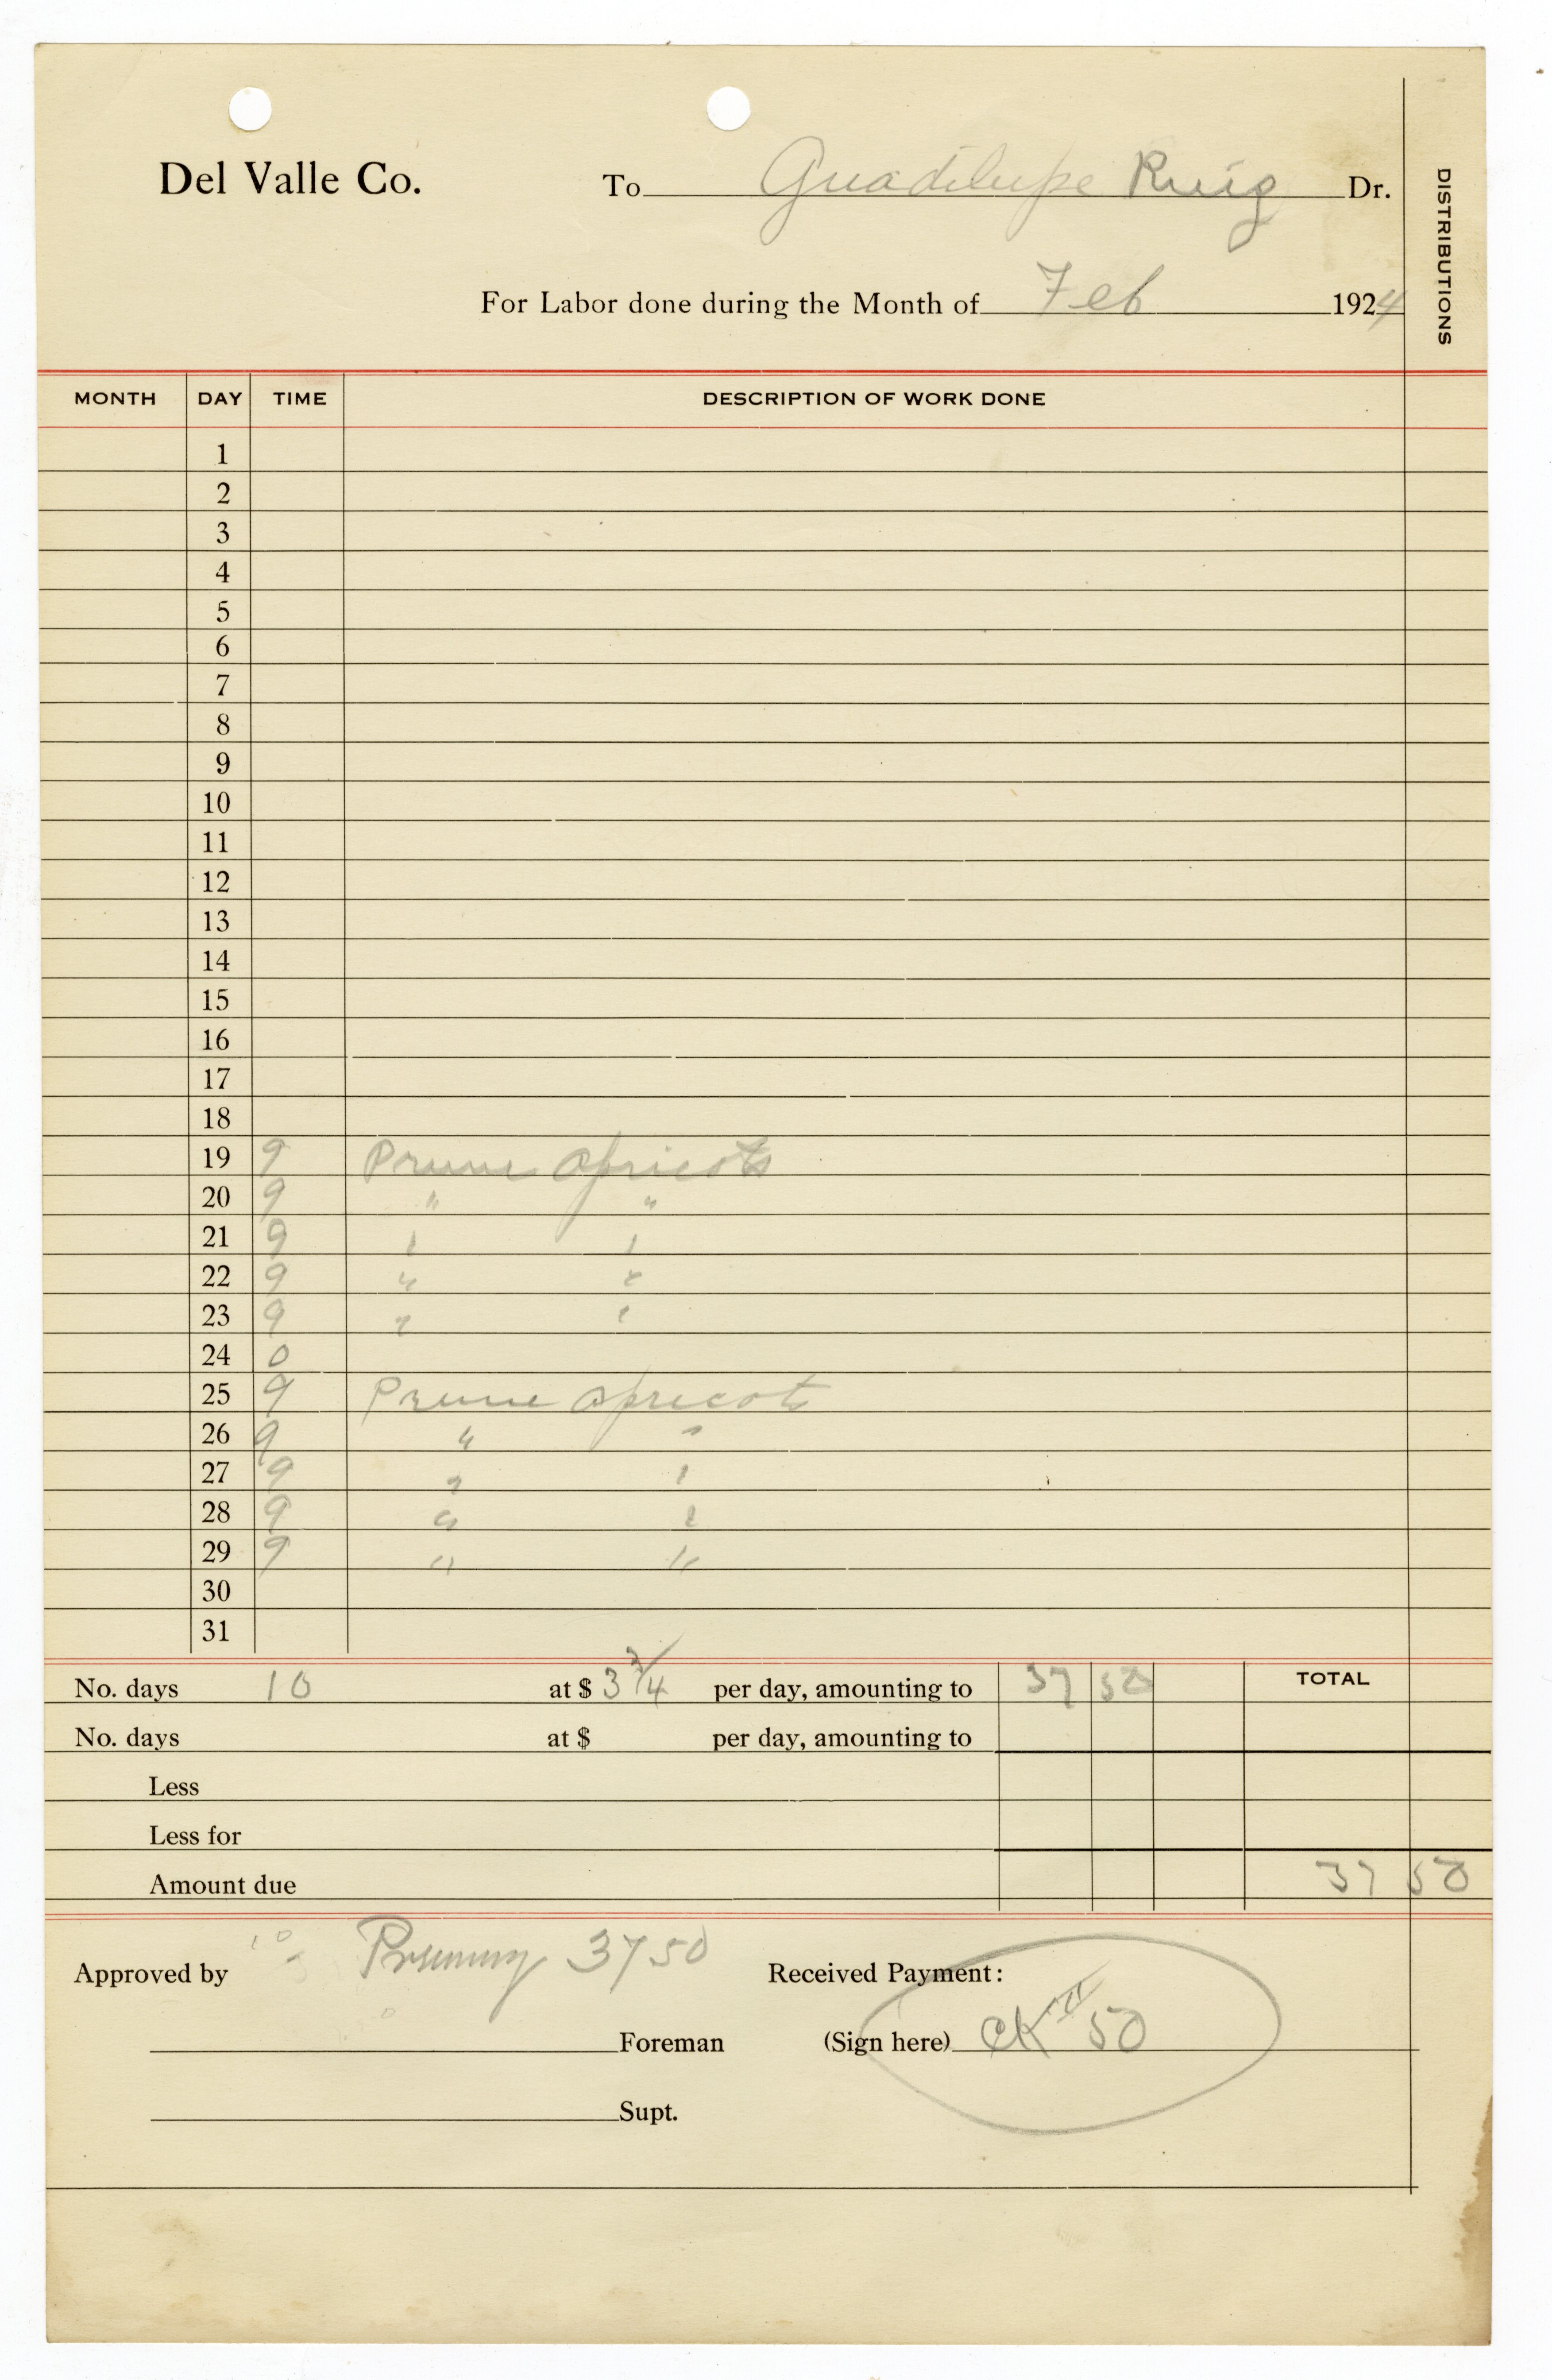 Del Valle Co. To Guadilupe Ruiz Dr.
DISTRIBUTIONS
For Labor done during the Month of Feb 1924
MONTH DAY TIME DESCRIPTION OF WORK DONE
1
2
3
4
5
6
7
8
9
10
11
12
13
14
15
16
17
18
19 9 Prune Apricots
20 9 " "
21 9 " "
22 9 " "
23 9 " "
24 0
25 9 Prune Apricots
26 9 " "
27 9 " "
28 9 " "
29 9 " "
30
31
No. days 10 at $ 3 3/4 per day, amounting to 37 50 TOTAL
No. days at $ per day, amounting to
Less
Less for
Amount due 37 50
Approved by Pruning 37 50 Received Payment:
Foreman (Sign here) CK # 50
Supt.